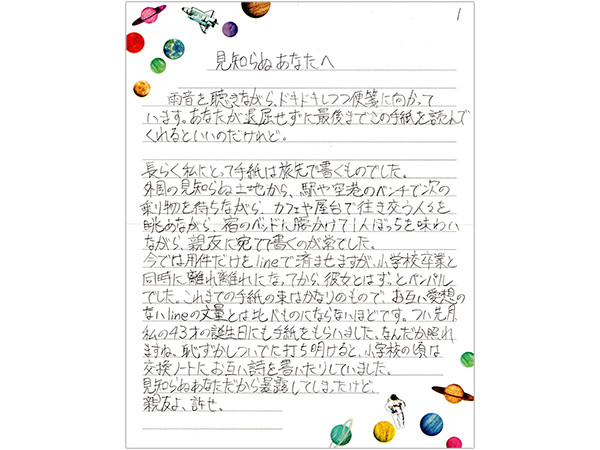 1
見知らぬあなたへ
雨音を聴きながら、ドキドキしつつ便箋に向かって
います。あなたが退屈せずに最後までこの手紙を読んで
くれるといいのだけれど。
長らく私にとって手紙は旅先で書くものでした。
外国の見知らぬ土地から、駅や空港のベンチで次の
乗り物を待ちながら、カフェや屋台で往き交う人々を
眺めながら、宿のベッドに腰かけて1人ぼっちを味わい
ながら、親友に宛てて書くのが常でした。
今では用件だけをlineで済ませますが、小学校卒業と
同時に離れ離れになってから、彼女とはずっとペンパル
でした。これまでの手紙の束はかなりのもので、お互い愛想の
ないlineの文量とは比べものにならないほどです。つい先月
私の43才の誕生日にも手紙をもらいました。なんだか照れ
ますね。恥ずかしついでに打ち明けると、小学校の頃は
交換ノートにお互い詩を書いたりしていました。
見知らぬあなただから暴露してしまったけど、
親友よ、許せ。